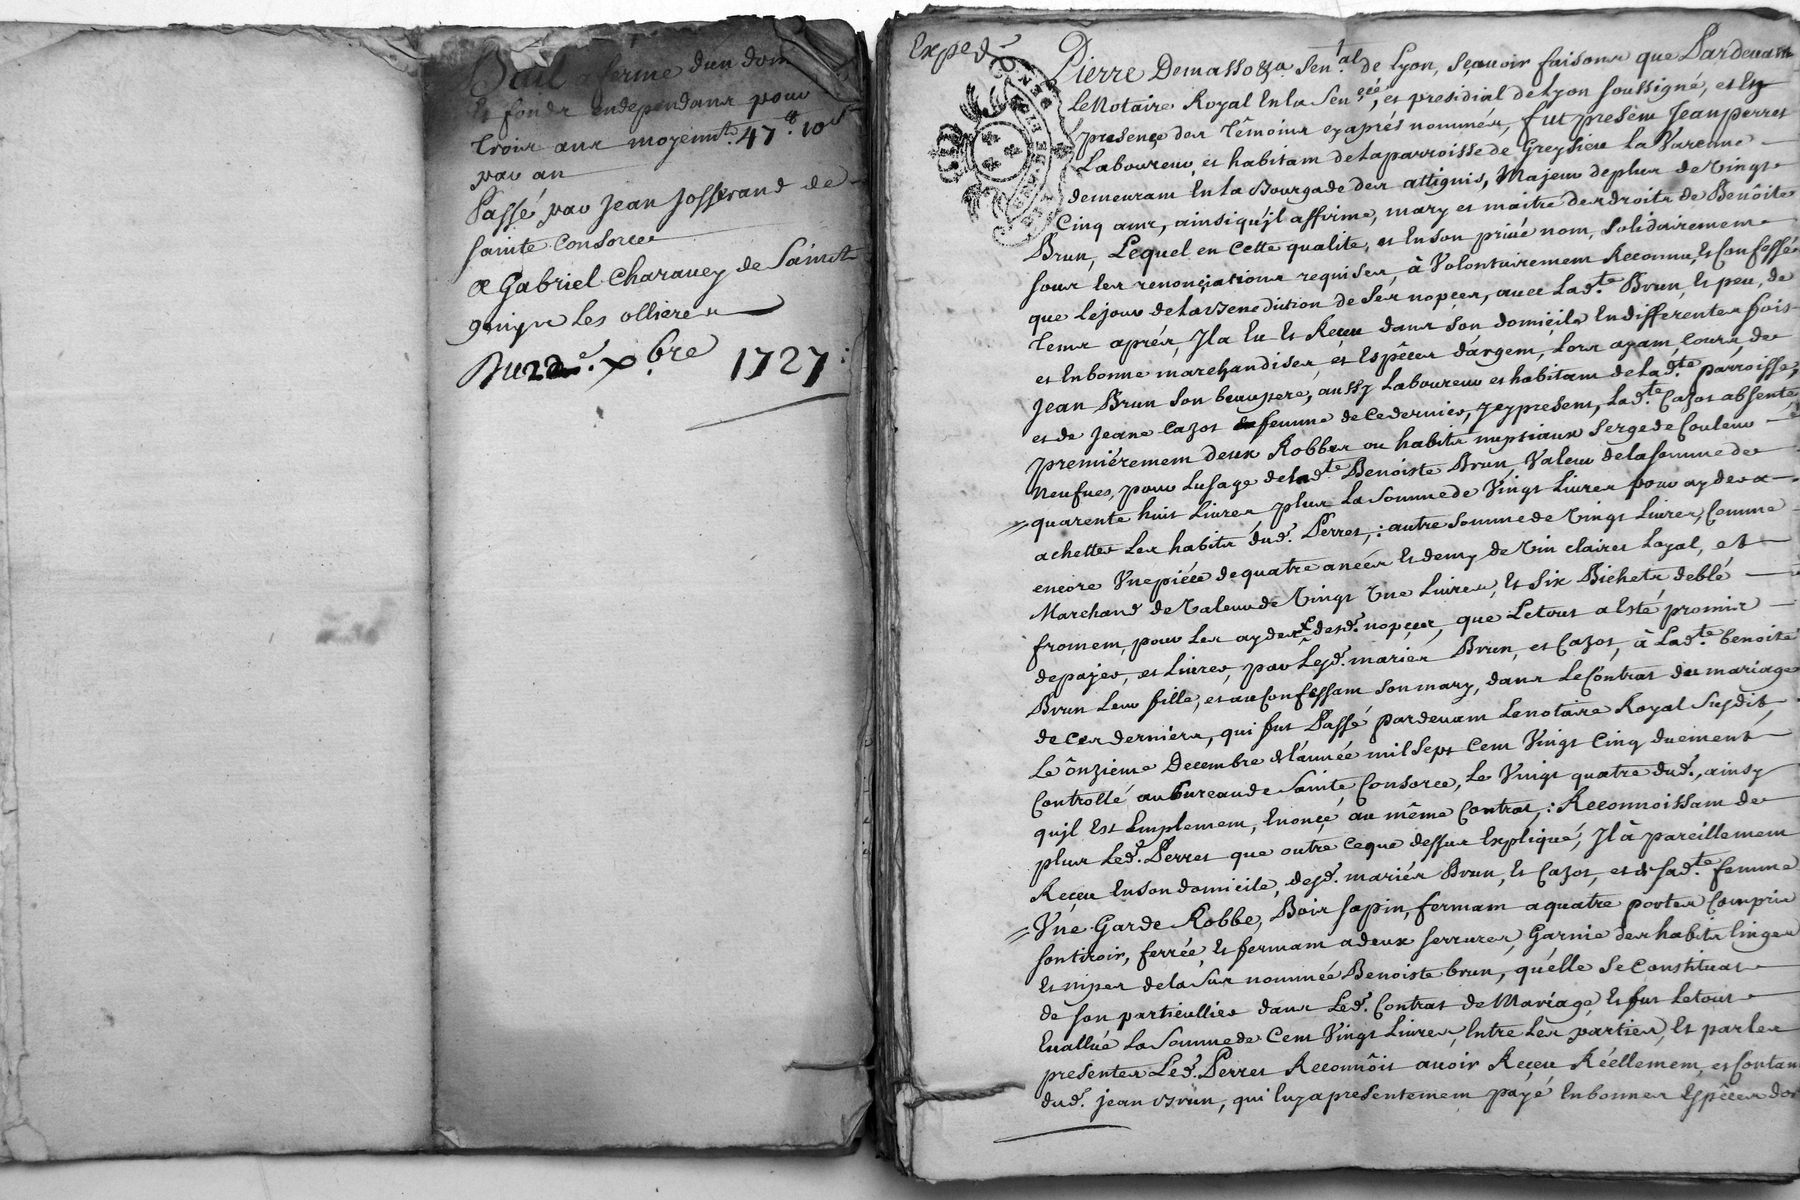 Bail a ferme dun dom
et fonds endependans pour
trois ans moyennt. 47tt. 10s
par an
Passé par Jean Josserand de
Sainte Consorce
a Gabriel Charauey de Sainct
genis les ollieres
Du 2e. xbre 1727:
Expedié
Pierre Demasso &a. Senal. de Lyon, sçauoir faisons que Pardeuant
Le Notaire Royal En la Sencée, et presidial de Lyon soussigné, et En
presence des têmoins cy aprés nommés, fut présent Jean perret
Laboureur et habitant de la parroisse de Greysieu la Varenne
demeurant En la Bourgade des attignis, Majeur de plus de Vingt
Cinq ans, ainsi qu'jl affirme, mary et maitre des droits de Benôite
Brun, Lequel en Cette qualite, et En son priué nom, solidairement
sous les renonçiations requises, à Volontairement Reconnu, Et Confessé
que le jour de la Benediction de ses nopces, auec Ladte. Brun, Et peu, de
tems aprés, Jl a Eu Et Reçeu dans son domicile En differentes fois
et En bonne marchandises, et Espêces d'argent, Lors ayant Cours, de
Jean Brun son beaupere, aussy Laboureur et habitant de Ladte parroisse,
et de Jeane Cazot femme de ce dernier, jcy present, Ladte. Cazot absente
premiérement deux Robbes ou habits nuptiaux Serge de Couleur
neufues, pour Lusage de Ladte Benoiste Brun, Valeur de la somme de
quarente huit Liures plus La Somme de Vingt Liures pour ayder a
achetter Les habits dud. Perret,: autre somme de Vingt Liures, Comme
encore Vne piéce de quatre anées Et demy de Vin clairet Loyal, et
Marchand de Valeur de Vingt Vne Liures, Et Six Bichets de blé
froment, pour Les ayder desd. nopces, que Le tout a Esté promis
de payer, et Liurer, par Lesd. mariés Brun, et Cazot, à Ladte. benoite
Brun Leur fille, et au Confessant son mary, dans Le Contrat de mariage
de Ces derniers, qui fut Passé pardeuant Le notaire Royal Susdit,
Le ônzieme Decembre de l'année mil Sept Cent Vingt Cinq duement
Controllé au bureau de Sainte Consorce, Le Vingt quatre dud., ainsy
qu'jl Est Emplement, Enonçé au même Contrat,: Reconnoissant de
plus Led. Perret que outre ce que dessus Expliqué, Jl à pareillement
Reçeu En son domicile, desd. mariés Brun, Et Cazot, et de Sadte. femme
Vne Garde Robbe, Bois sapin, fermant a quatre portes Compris
son tiroir, ferrée, Et fermant a deux serrures, Garnie des habits linges
Et nipes de la Sus nommée Benoiste brun, qu'elle Se Constituat
de son particullier dans Led. Contrat de Mariage, Et fut Le tout
Euallué La Somme de Cent Vingt Liures, Entre Les parties, Et par les
presentes Led. Perret Reconnôit auoir Reçeu Réellement, et Contant
dud. jean Brun, qui luy a presentement payé En bonnes Espêces dor